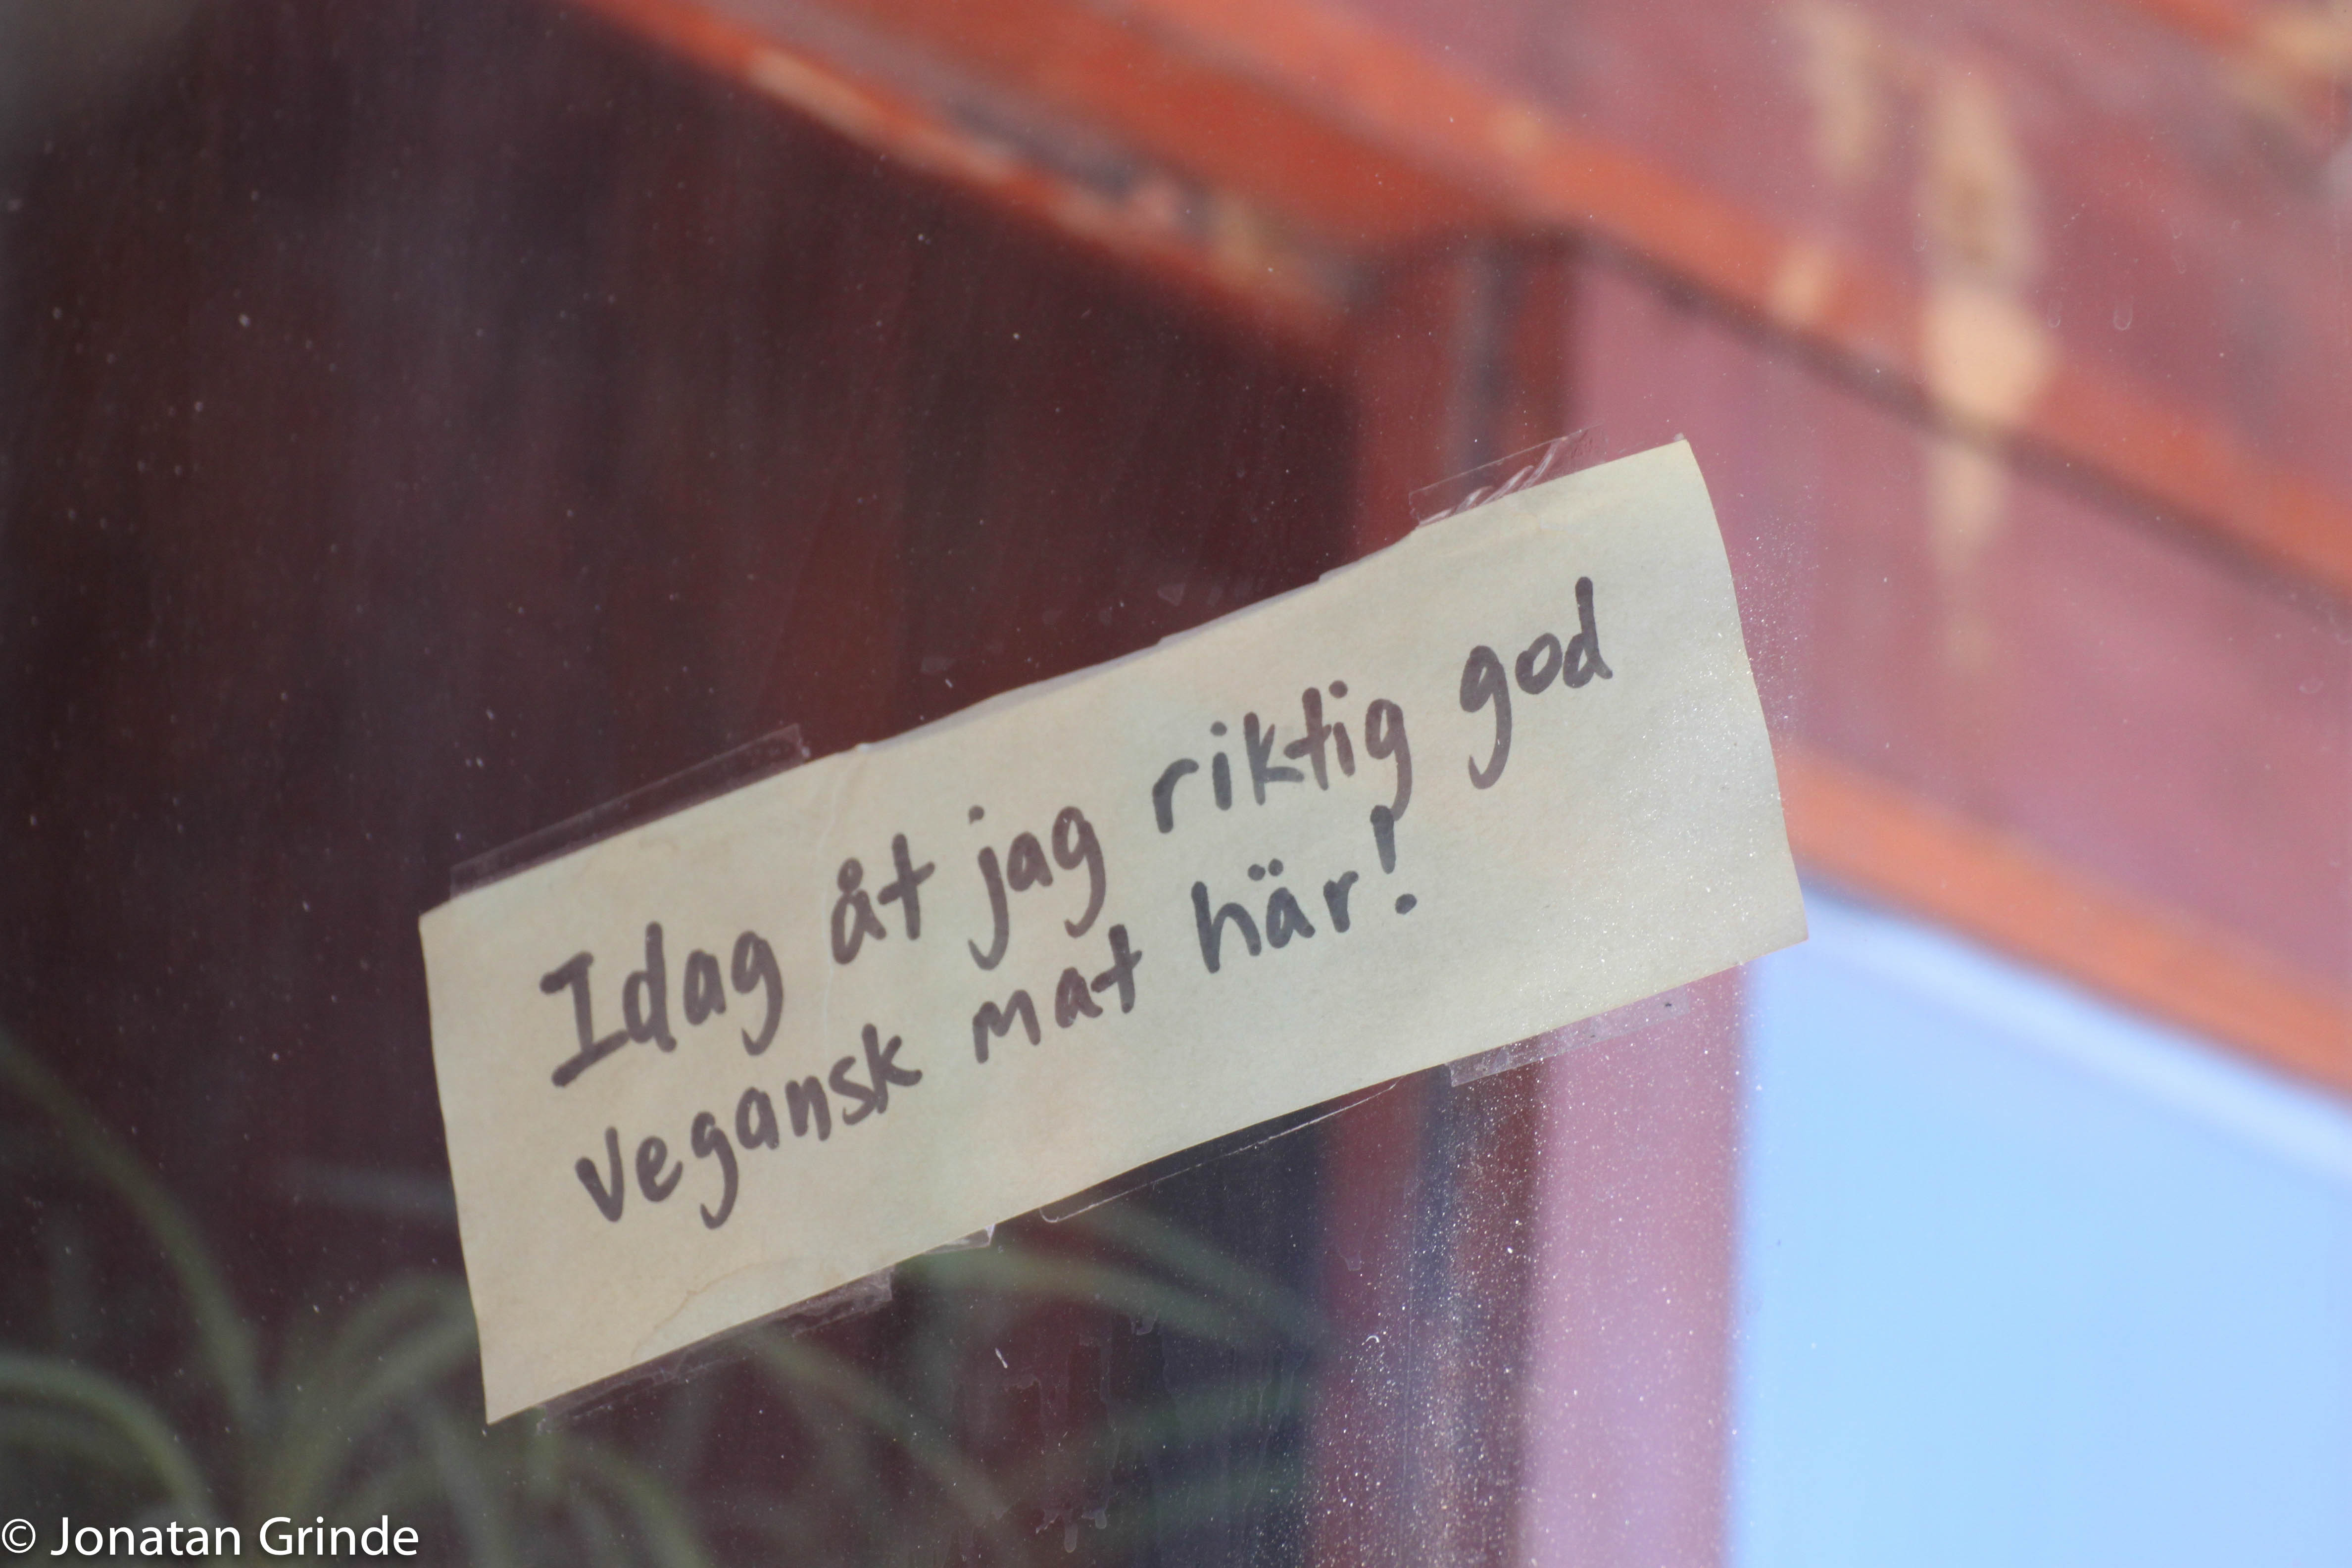 Idag åt jag riktig god
vegansk mat här!
© Jonatan Grinde